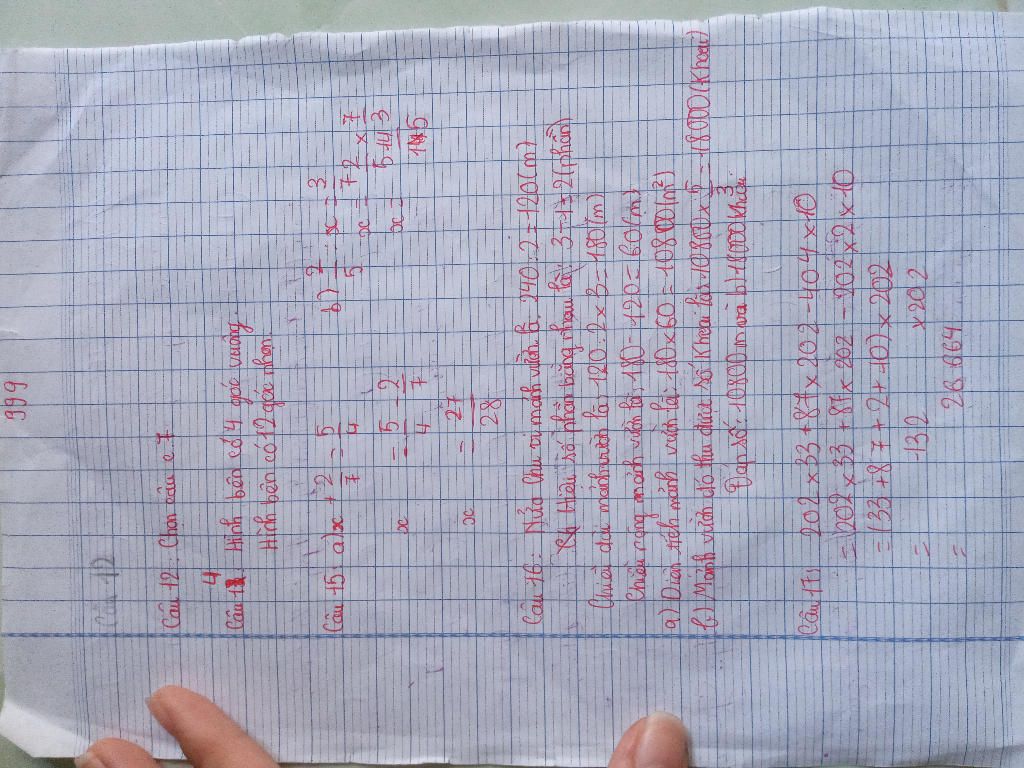 999
Câu 12
Câu 12: Chọn câu e 7
Câu 14: Hình bên có 4 góc vuông.
Hình bên có 12 góc nhọn.
Câu 15: a) x + 2/7 = 5/4
x = 5/4 - 2/7
x = 27/28
b) 2/5 : x = 3/7
x = 2/5 × 7/3
x = 14/15
Câu 16: Nửa chu vi mảnh vườn là: 240 : 2 = 120 (m)
Hiệu số phần bằng nhau là: 3 - 1 = 2 (phần)
Chiều dài mảnh vườn là: 120 : 2 × 3 = 180 (m)
Chiều rộng mảnh vườn là: 180 - 120 = 60 (m)
a) Diện tích mảnh vườn là: 180 × 60 = 10800 (m²)
b) Mảnh vườn đó thu được số Khoai là: 10800 × 5/3 = 18000 (Khoai)
Đáp số: 10800 m và b) 18000 Khoai
Câu 17: 202 × 33 + 87 × 202 - 404 × 10
= 202 × 33 + 87 × 202 - 202 × 2 × 10
= (33 + 87 + 2 + 10) × 202
= 132 × 202
= 26.664